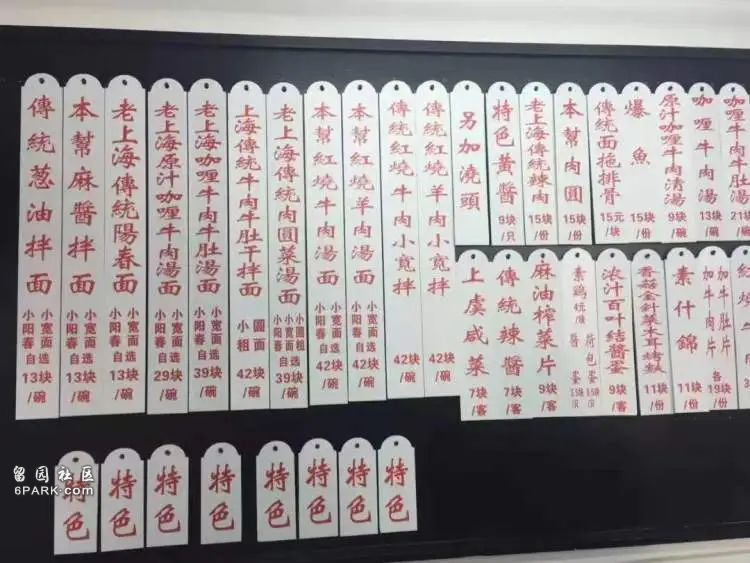 傳統葱油拌面 小阳春 小宽面 自选 13块/碗
本幫麻醬拌面 小阳春 小宽面 自选 13块/碗
老上海傳統陽春面 小阳春 小宽面 自选 13块/碗
老上海原汁咖喱牛肉湯面 小阳春 小宽面 自选 29块/碗
老上海咖喱牛肉牛肚湯面 小阳春 小宽面 自选 39块/碗
上海傳統牛肉牛肚干拌面 小粗 圆面 42块/碗
老上海傳統肉圓菜湯面 小阳春 小宽面 小圆粗 自选 39块/碗
本幫紅燒牛肉湯面 小阳春 小宽面 自选 42块/碗
本幫紅燒羊肉湯面 小阳春 小宽面 自选 42块/碗
傳統紅燒牛肉小寬拌 42块/碗
傳統紅燒羊肉小寬拌 42块/碗
另加澆頭
特色黃醬 9块/只
老上海傳統辣肉 15块/份
本幫肉圓 15块/份
傳統面拖排骨 15元/块
爆魚 15块/份
原汁咖喱牛肉清湯 9块/碗
咖喱牛肉湯 13块/碗
咖喱牛肉牛肚湯 21块/碗
上虞咸菜 7块/客
傳統辣醬 7块/客
麻油榨菜片 9块/客
素鷄
荷包蛋
浓汁百叶结醬蛋 9块/客
香菇金針菜木耳烤麩 11块/份
素什錦 11块/份
加牛肉片 加牛肚片 各19块/份
特色
特色
特色
特色
特色
特色
特色
特色
留园社区
6PARK.COM